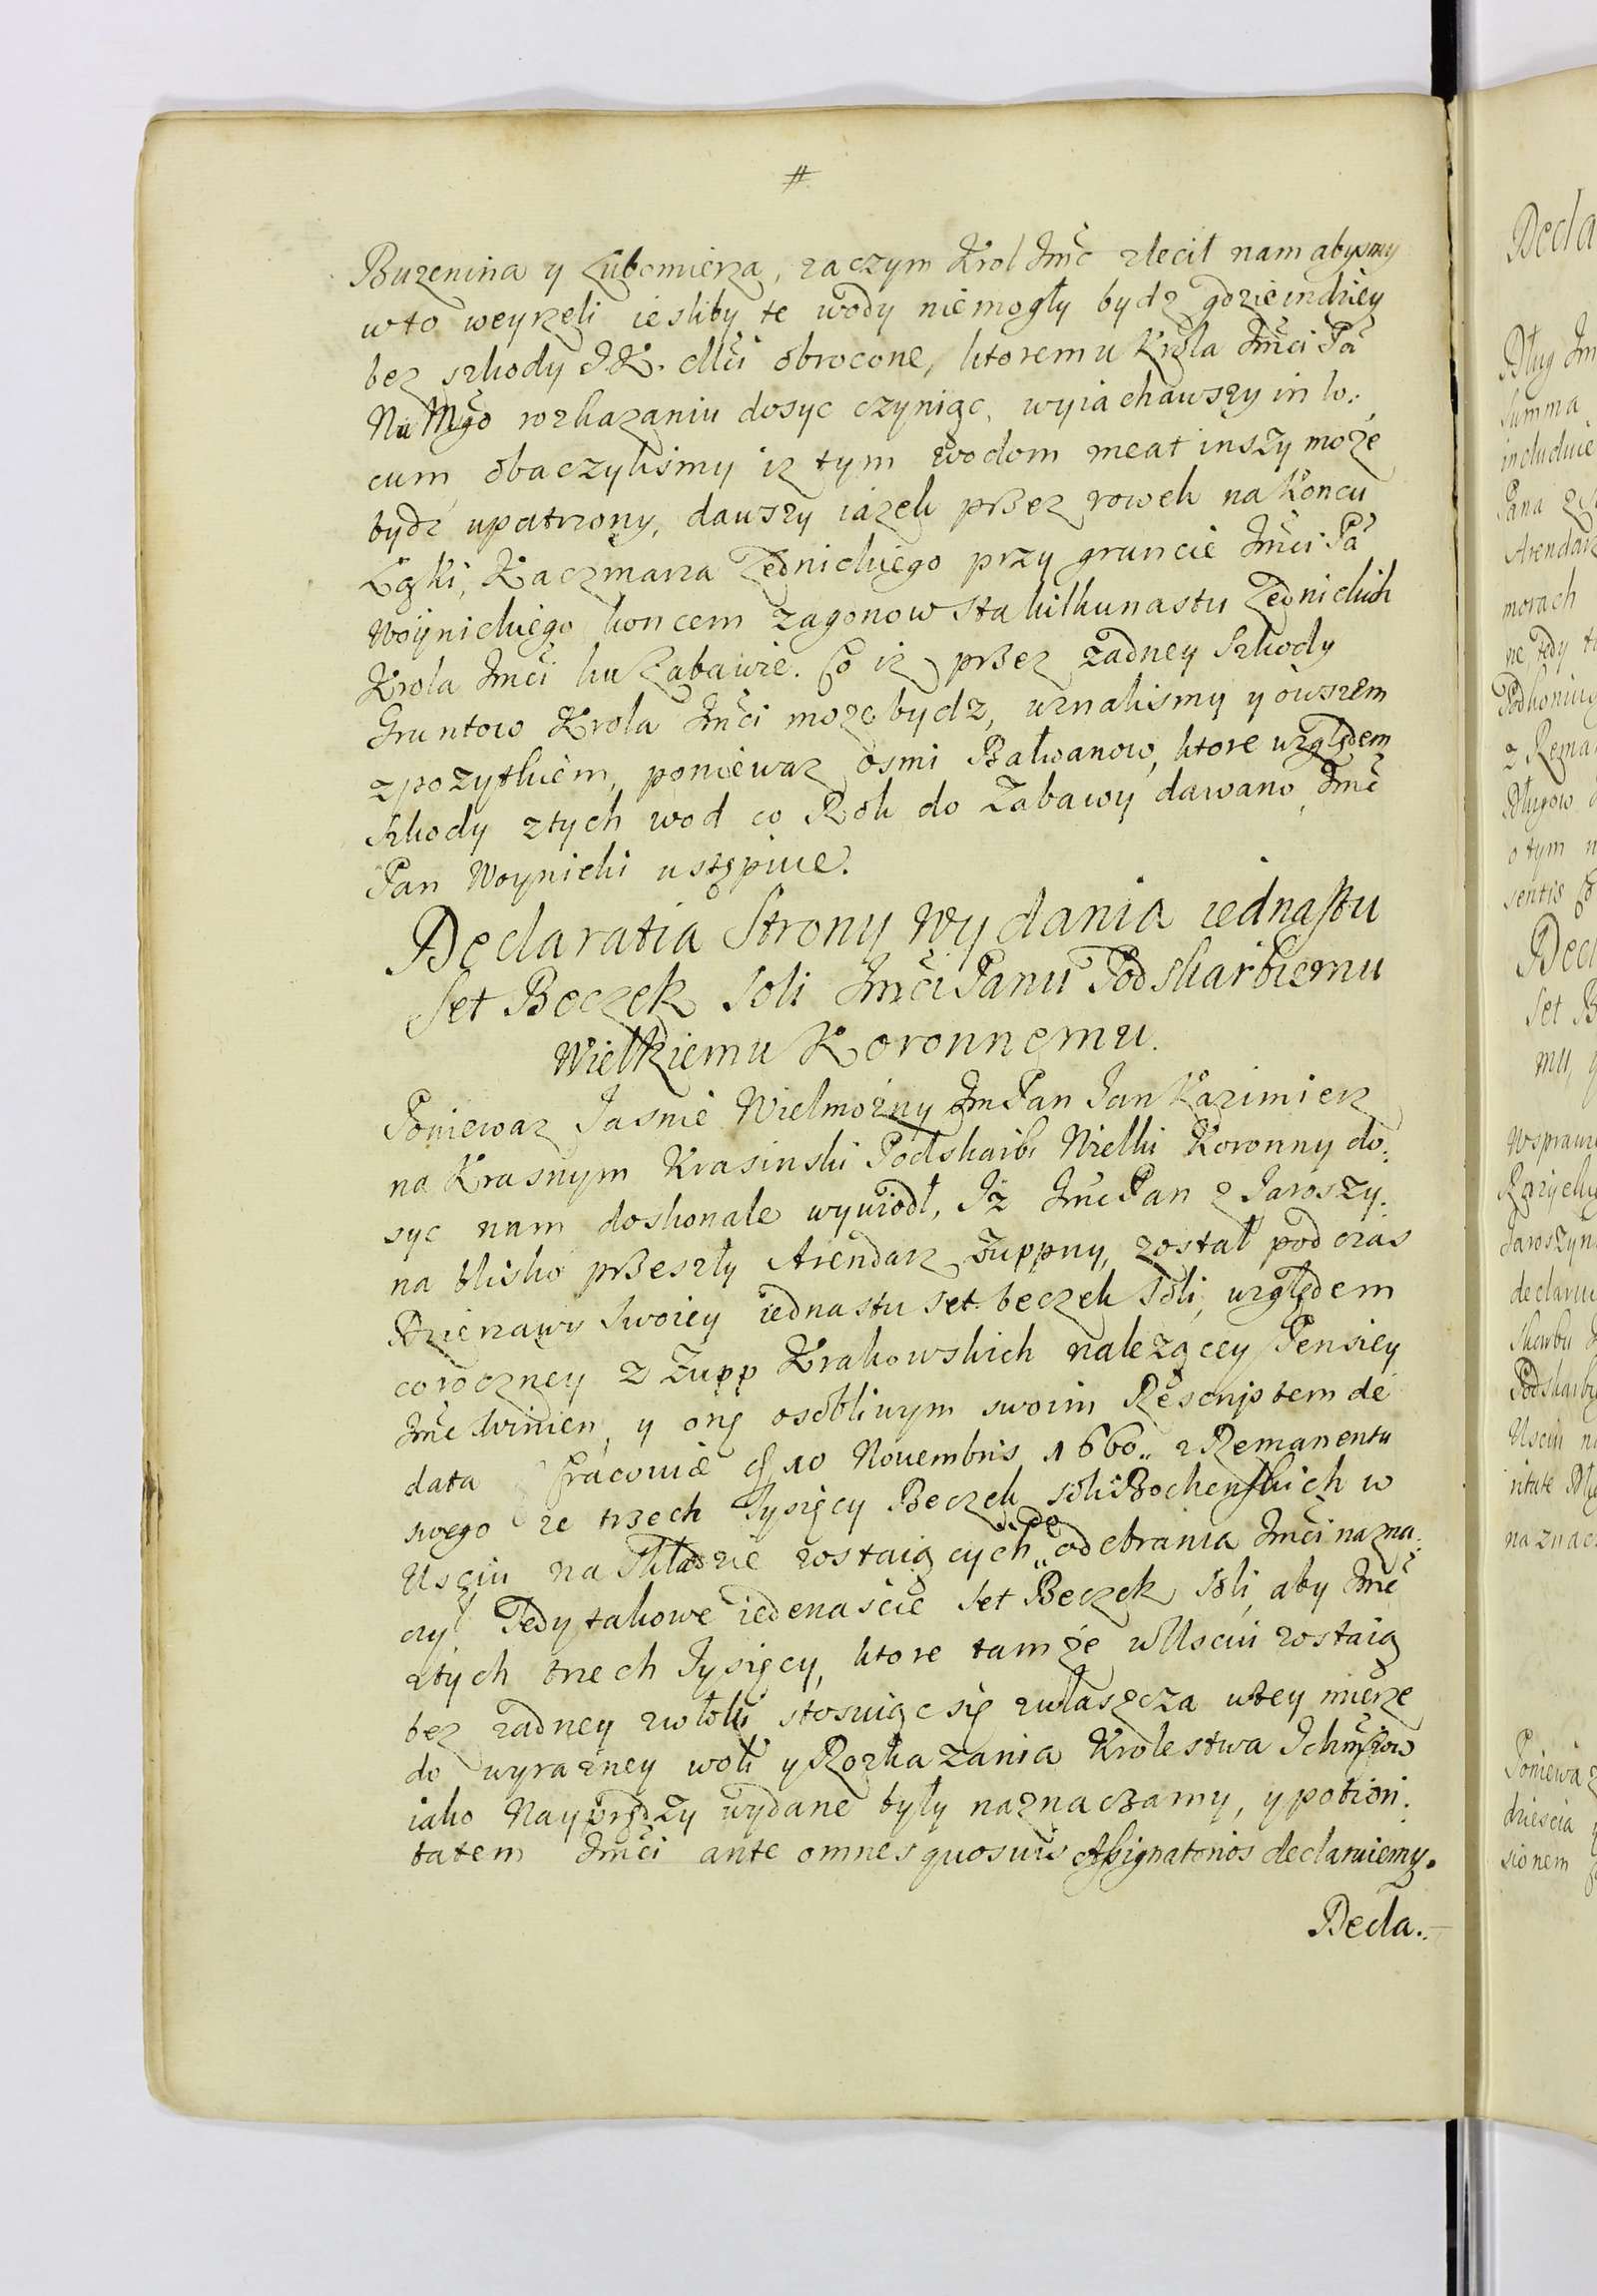 #
Buzenina y Lubomierza, zaczym Krol Jmć zlecił nam abysmy
w to weyrzeli iesliby te wody niemogły bydz gdzieindziey
bez szkody JK. Mci obrocone, ktoremu Krola Jmći Pa
Na Mgo rozkazaniu dosyc czyniąc, wyiachawszy in lo:
cum obaczylismy iz tym wodom meat inszy może
bydź upatrzony, dawszy iazek przez rowek na koncu
Łąki, Kaczmarza Lednickiego przy gruncie Jmći Pa
Woynickiego koncem zagonow sta kilkunastu Lednickich
Krola Jmći ku Zabawie. Co iz przez żadney szkody
Gruntow Krola Jmći może bydz, uznalismy y owszem
z pozytkiem, poniewaz osmi Bałwanow, ktore względem
szkody z tych wod co Rok do Zabawy dawano, Jmć
Pan Woynicki ustępuie.
Declaratia Strony Wydania iednastu
Set Beczek Soli Jmći Panu Podskarbiemu
Wielkiemu Koronnemu.
Poniewaz Jasnie Wielmożny Jm Pan Jan Kazimierz
na Krasnym Krasinski Podskarbi Wielki Koronny do:
syc nam doskonale wywiodł, Iż Jmć Pan z Jaroszy:
na blisko przeszły Arendarz Zuppny, został pod czas
Dzierzawy swoiey iednastu set beczek soli, względem
coroczney z Zupp Krakowskich należącey Pensiey
Jmć winien, y onę osobliwym swoim Rescriptem de
data Cracoviæ 10 Novembris 1660. z Remanentu
swego ze trzech Tysięcy Beczek soli Bochenskich w
Usciu na Składzie zostaiących do odebrania Jmći nazna:
czył Tedy takowe iedenaście set Beczek soli, aby Jmć
z tych trzech Tysięcy, ktore tamże w Usciu zostaią
bez żadney zwłoki stosuiąc się zwłaszcza w tey mierze
do wyrazney woli y Rozkazania Krolestwa Ichmćiow
iako Nayprędzy wydane były naznaczamy, y potiori:
tatem Jmći ante omnes quosvis Assignatorios declaruiemy.
Decla.